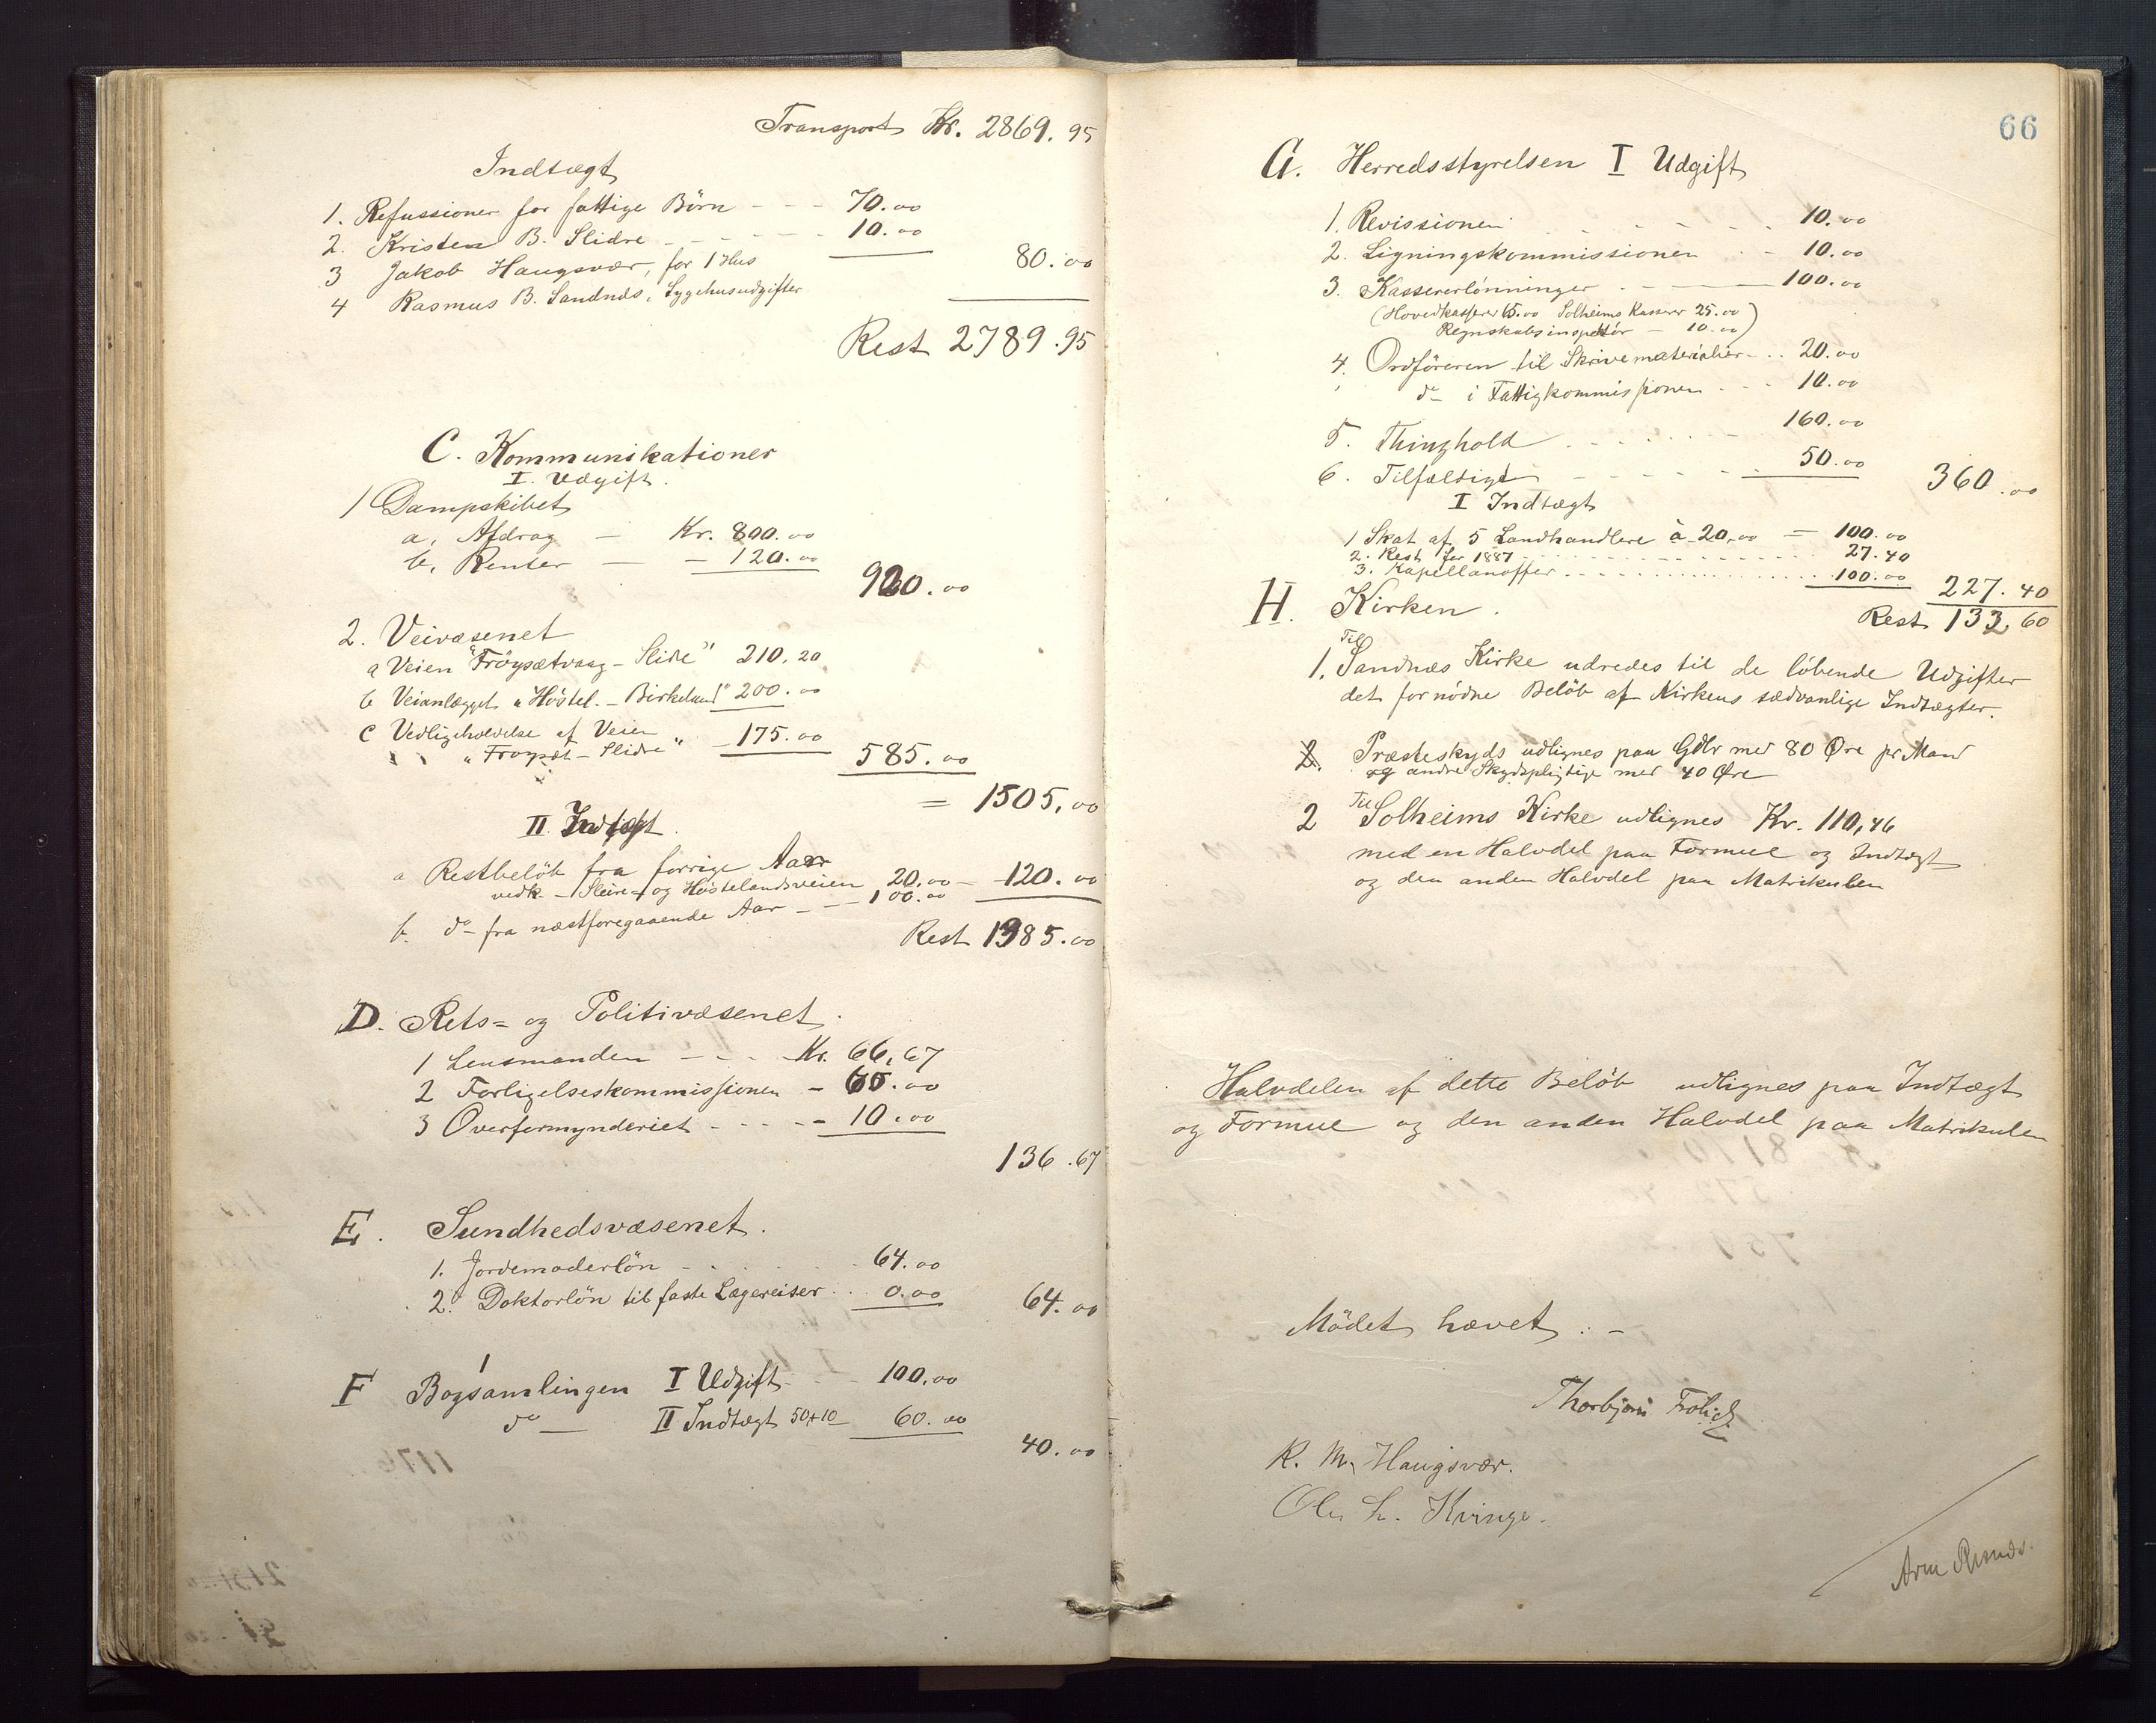 Transport Kr. 2869.95
Indtægt
1. Refussioner for fattige Börn - - - 70.00
2. Kristen B. Slidre - - - - - 10.00
3 Jakob Haugsvær, for 1 Hus
80.00
4 Rasmus B. Sandnæs, Sygehusudgifter
Rest 2789.95
C. Kommunikationer
I. Udgift.
1 Dampskibet
a, Afdrag - Kr. 800.00
b, Renter - - 120.00
920.00
2. Veivæsenet
a Veien "Fröysætvaag - Slire" 210.20
b Veianlægget "Höstel. - Birkeland" 200.00
c Vedligeholdelse af Veien
"Froyset - Slidre" - 175.00
585.00
= 1505,00
II Indtægt.
a Restbelöb fra forrige Aar
vedk. - Sleire- og Høstelandsveien 20.00 - 120.00
b. do fra næstforegaaende Aar - - - 100.00
Rest 1385.00
D. Rets= og Politivæsenet.
1 Lensmanden - - - Kr. 66,67
2 Forligelseskommissionen - 60.00
3 Overformynderiet - - - - - 10.00
136.67
E. Sundhedsvæsenet.
1. Jordemoderlön - - - 64.00
2. Doktorlön til faste Lægereiser . . 0.00
64.00
F Bogsamlingen I Udgift - - 100.00
do - II Indtægt 50+10 60.00
40.00
66
G. Herredsstyrelsen I Udgift
1. Revissionen - - - 10.00
2. Ligningskommissionen - - 10.00
3. Kassererlönninger - - 100.00
(Hovedkasserer 65.00 Solheims Kasserer 25.00
Regnskabsinspektör - 10.00)
4. Ordföreren til Skrivematerialier - . . 20.00
do i Fattigkommissionen . - - 10.00
5. Thinghold . - - - - - 160.00
6. Tilfældigt - - - - - 50.00
360.00
I Indtægt
1 Skat af 5 Landhandlere à 20,00 = 100.00
2. Rest for 1887 - - - - - 27.40
3. Kapellanoffer . . . . . . . 100.00
227.40
H. Kirken.
Rest 132,60
1. Til Sandnæs Kirke udredes til de löbende Udgifter
det fornödne Belöb af Kirkens sædvanlige Indtægter.
2. Præsteskyds udlignes paa Gdbr med 80 Øre pr. Mand
og andre Skydspligtige med 40 Øre
2 Til Solheims Kirke udlignes Kr. 110,46
med en Halvdel paa Formue og Indtægt
og den anden Halvdel paa Matrikulen
Halvdelen af dette Belöb udlignes paa Indtægt
og Formue og den anden Halvdel paa Matrikulen
Mödet hævet. -
Thorbjörn Frölich
R. M. Haugsvær.
Ole L. Kvinge.